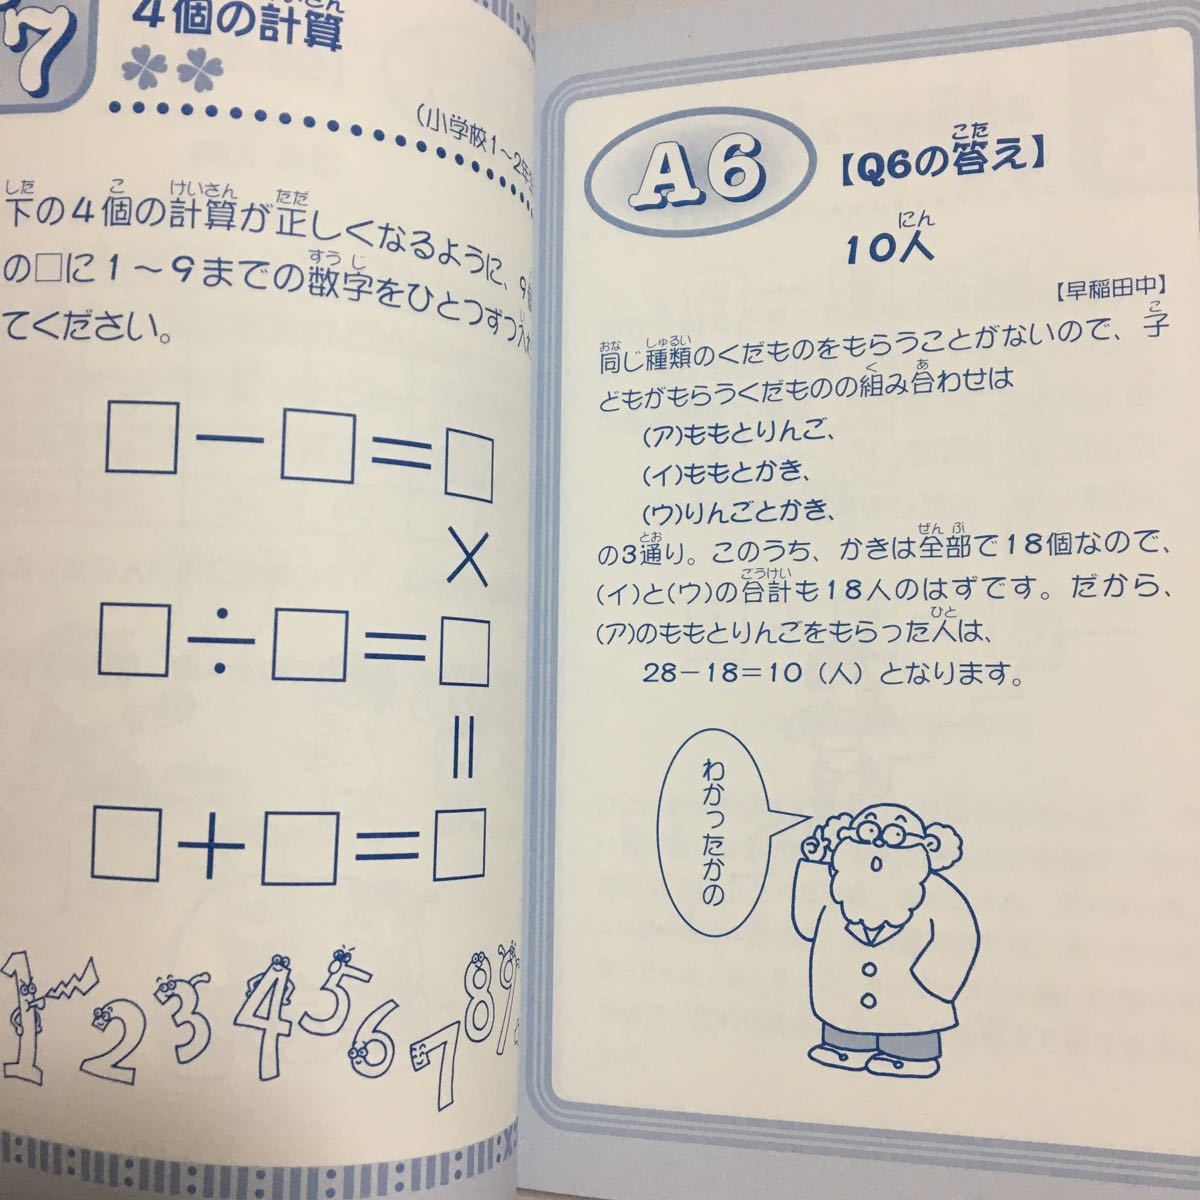 7
4個の計算
(小学校1～2年
下の4個の計算が正しくなるように、9
の□に1～9までの数字をひとつずつ入
てください。
□－□＝□
×
□÷□＝□
＝
□＋□＝□
1 2 3 4 5 6 7 8 9
A6
【Q6の答え】
10人
【早稲田中】
同じ種類のくだものをもらうことがないので、子
どもがもらうくだものの組み合わせは
(ア)ももとりんご、
(イ)ももとかき、
(ウ)りんごとかき、
の3通り。このうち、かきは全部で18個なので、
(イ)と(ウ)の合計も18人のはずです。だから、
(ア)のももとりんごをもらった人は、
28－18＝10（人）となります。
わかったかの